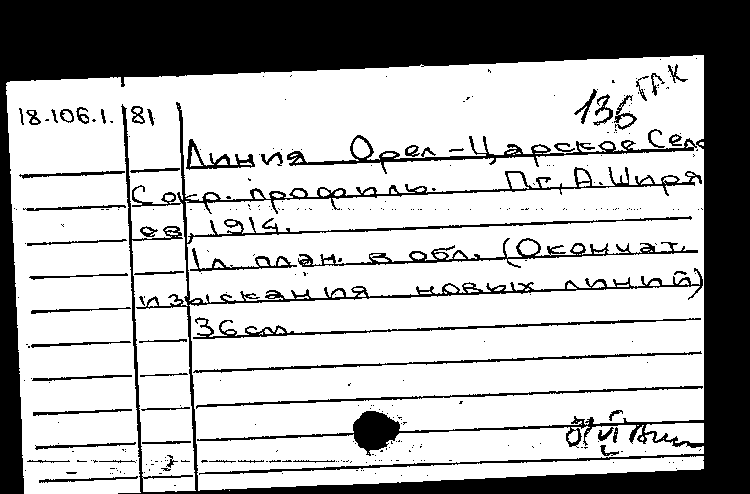 18.106.1. 81
136 ГАК
Линия Орел-Царское Село
Сокр. профиль. Пг, А. Ширя
ев, 1914.
1л. план. в обл. (Окончат.
изыскания новых линий)
36см.